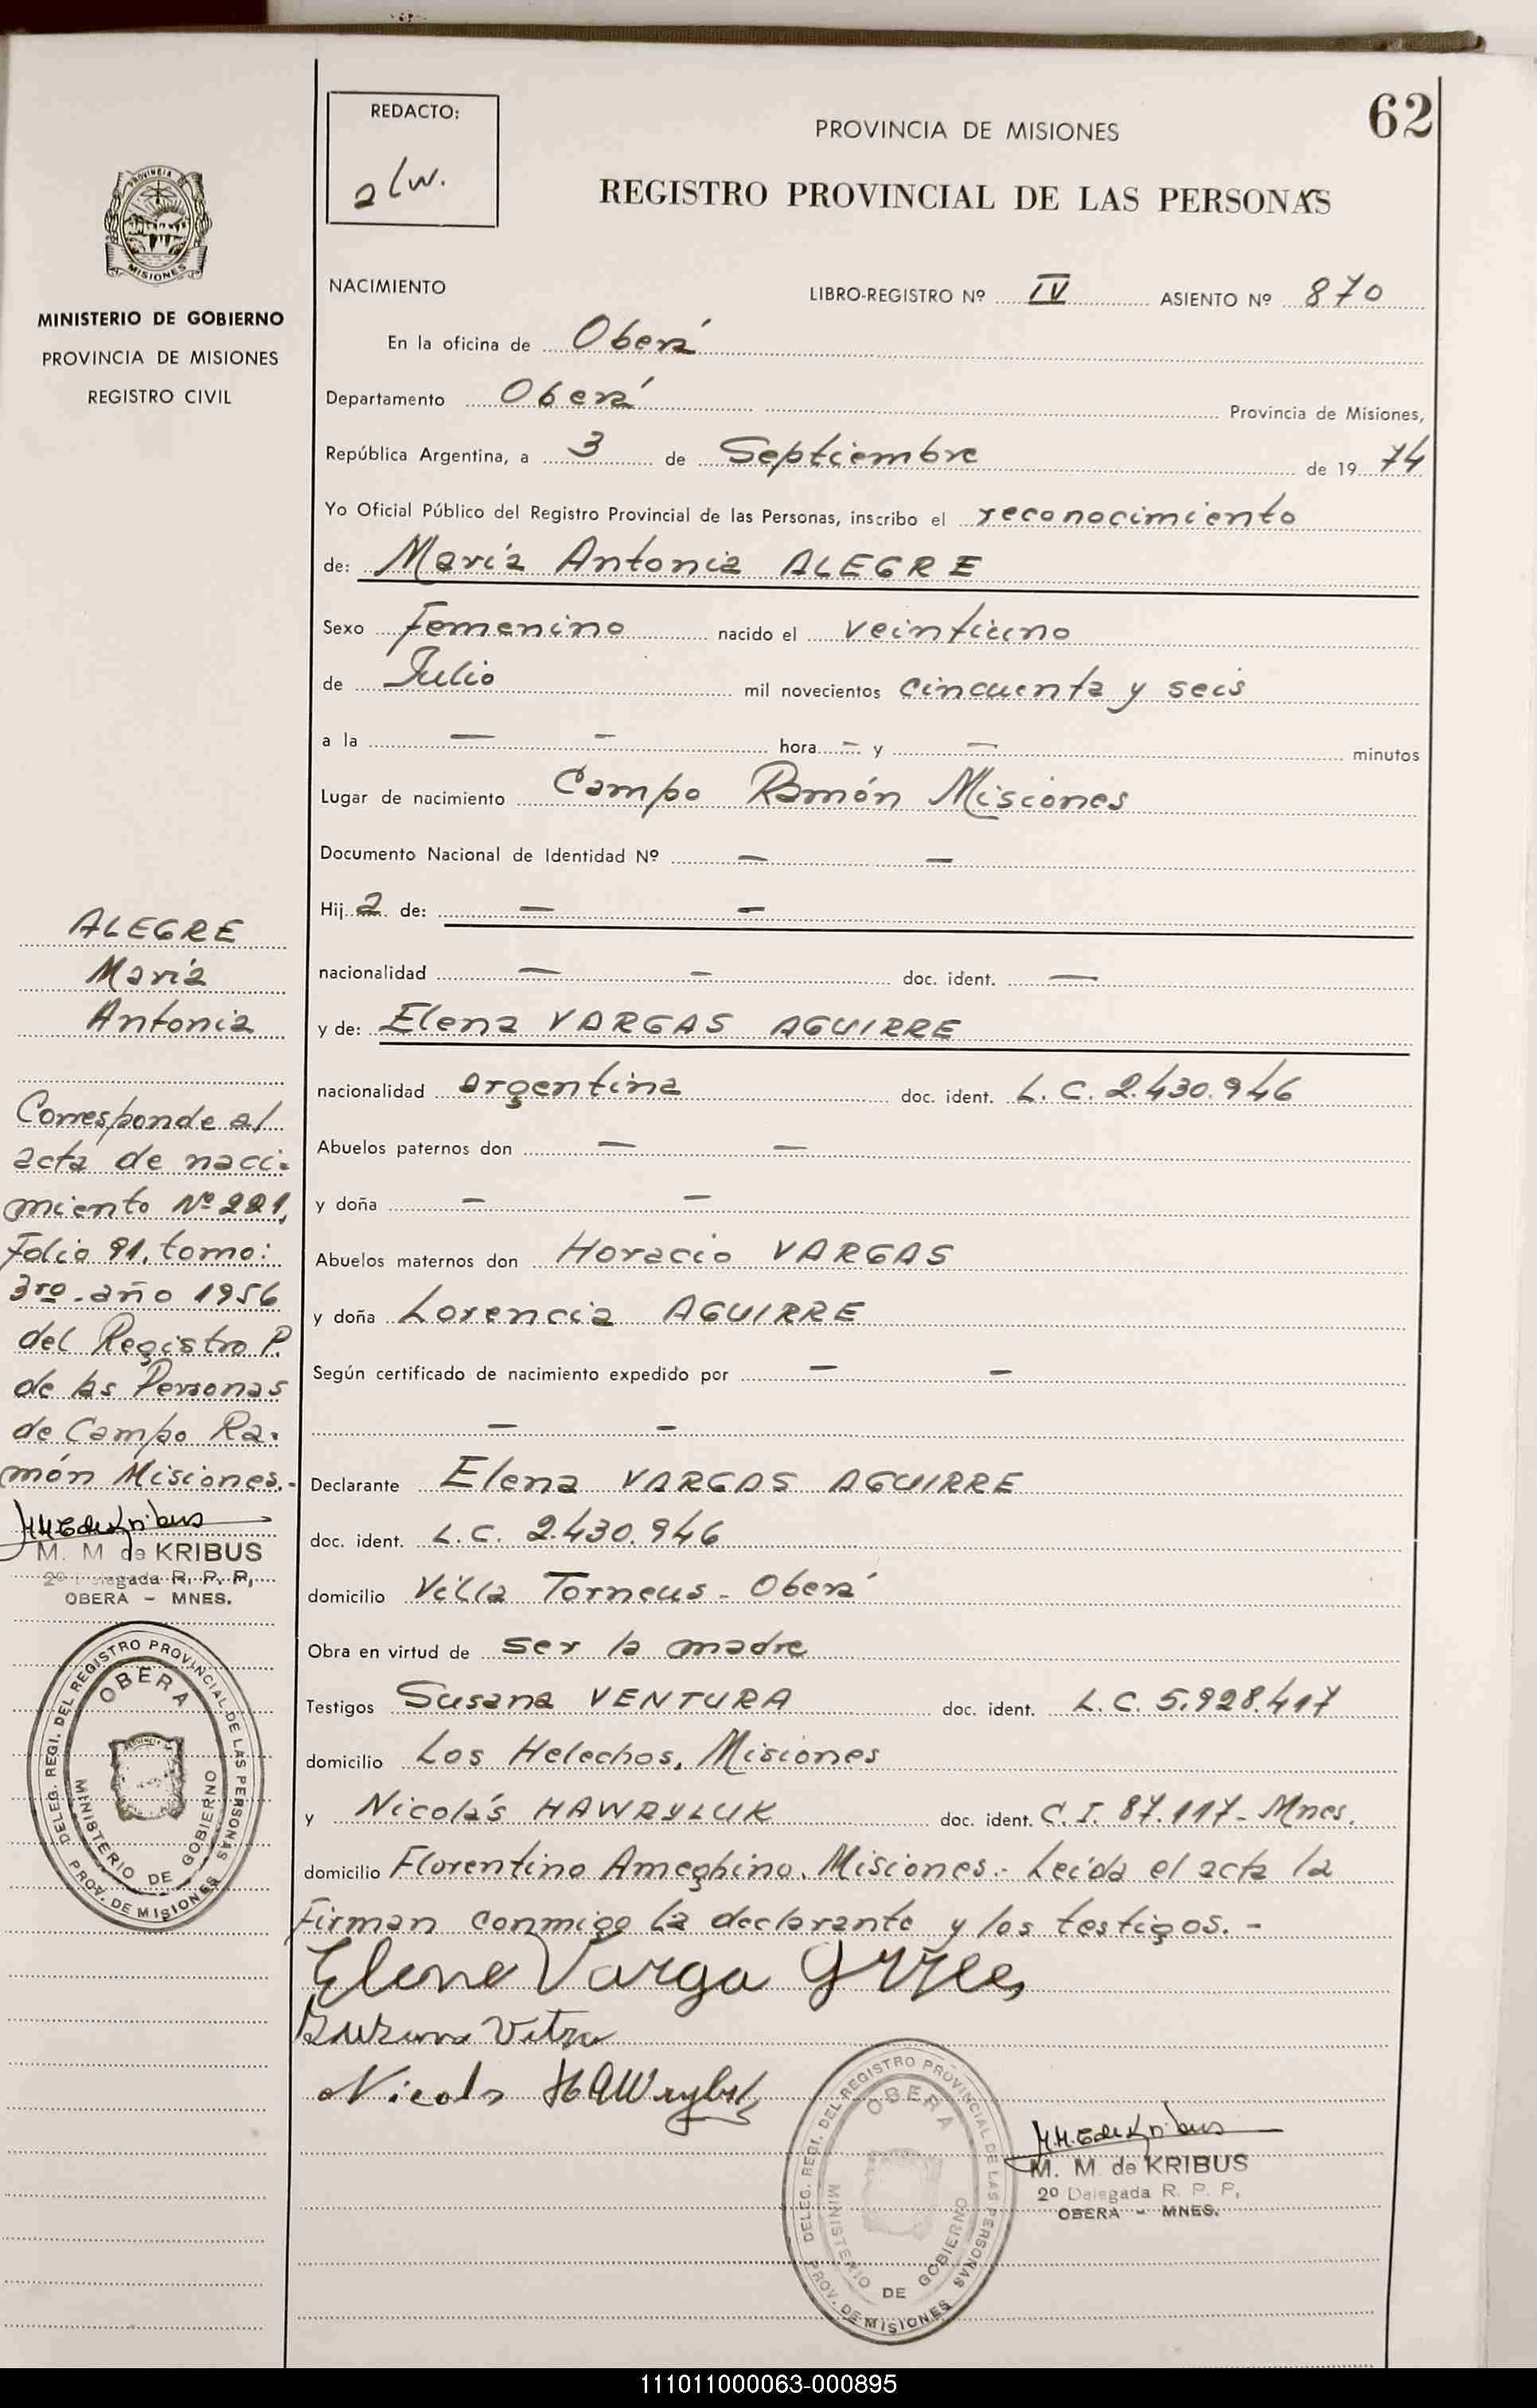 62
REDACTO:
alw.
PROVINCIA DE MISIONES
REGISTRO PROVINCIAL DE LAS PERSONAS
PROVINCIA DE
MISIONES
MINISTERIO DE GOBIERNO
PROVINCIA DE MISIONES
REGISTRO CIVIL
NACIMIENTO LIBRO-REGISTRO Nº IV ASIENTO Nº 870
En la oficina de Oberá
Departamento Oberá Provincia de Misiones,
República Argentina, a 3 de Septiembre de 19 74
Yo Oficial Público del Registro Provincial de las Personas, inscribo el reconocimiento
de: María Antonia ALEGRE
Sexo Femenino nacido el veintiuno
de Julio mil novecientos cincuenta y seis
a la — — hora — y — minutos
Lugar de nacimiento Campo Ramón Misiones
Documento Nacional de Identidad Nº — —
Hij a de: — —
nacionalidad — — doc. ident. —
y de: Elena VARGAS AGUIRRE
nacionalidad argentina doc. ident. L. C. 2.430.946
Abuelos paternos don — —
y doña — —
Abuelos maternos don Horacio VARGAS
y doña Lorencia AGUIRRE
Según certificado de nacimiento expedido por — —
— —
Declarante Elena VARGAS AGUIRRE
doc. ident. L. C. 2.430.946
domicilio Villa Torneus - Oberá
Obra en virtud de ser la madre
Testigos Susana VENTURA doc. ident. L. C. 5.928.417
domicilio Los Helechos, Misiones
y Nicolás HAWRYLUK doc. ident. C. I. 87.117- Mnes.
domicilio Florentino Ameghino. Misiones.- Leída el acta la
Firman conmigo la declarante y los testigos. -
Elena Varga
Nicols
ALEGRE
María
Antonia
Corresponde al
acta de naci-
miento Nº 221,
Folio 91, tomo:
3ro. año 1956
del Registro P.
de las Personas
de Campo Ra-
món Misiones.-
M. M de KRIBUS
2º Delegada R. P. P,
OBERA - MNES.
DELEG. REGI. DEL REGISTRO PROVINCIAL DE LAS PERSONAS
OBERA
MINISTERIO DE GOBIERNO
PROV. DE MISIONES
DELEG. REGI. DEL REGISTRO PROVINCIAL DE LAS PERSONAS
OBERA
MINISTERIO DE GOBIERNO
PROV. DE MISIONES
M. M de KRIBUS
2º Delegada R. P. P,
OBERA - MNES.
111011000063-000895